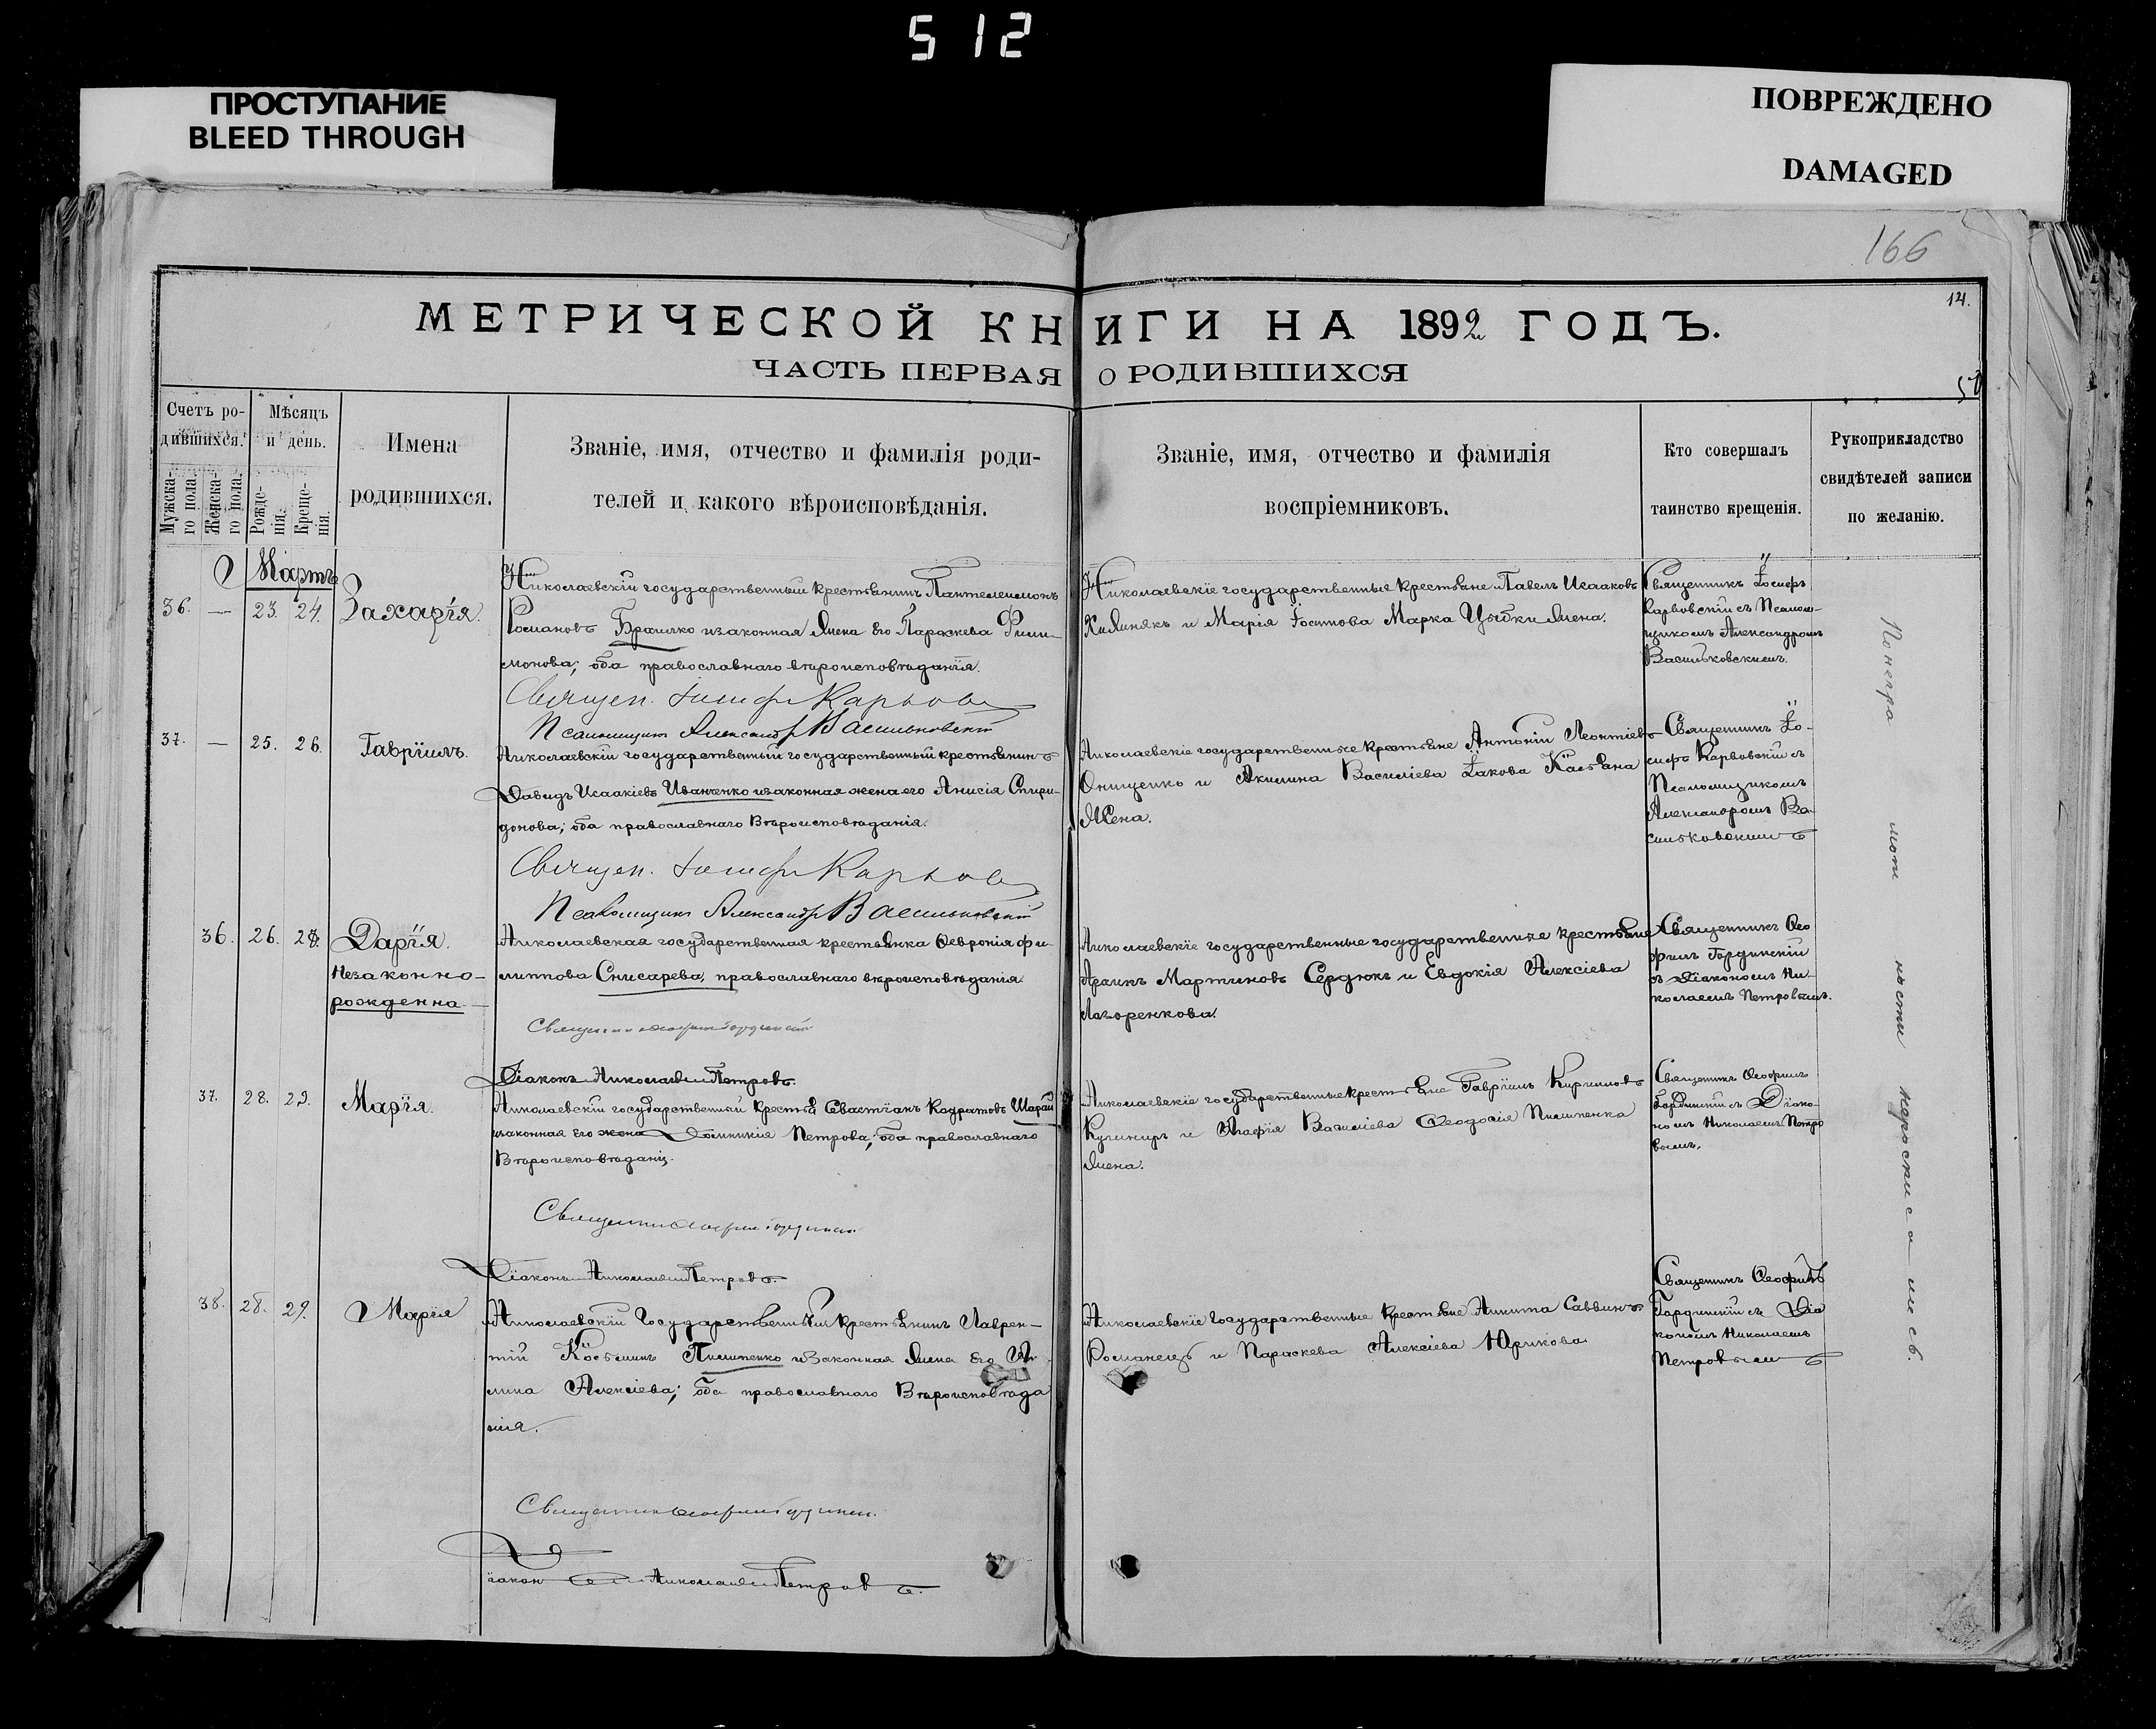 512
ПРОСТУПАНИЕ
BLEED THROUGH
ПОВРЕЖДЕНО
DAMAGED
166
14.
МЕТРИЧЕСКОЙ КНИГИ НА 1892 ГОДЪ.
ЧАСТЬ ПЕРВАЯ О РОДИВШИХСЯ
Счетъ ро-
дившихся.
Мужска-
го пола.
Женска-
го пола.
Мѣсяцъ
и день.
Рожде-
нія.
Креще-
нія.
Имена
родившихся.
Званіе, имя, отчество и фамилія роди-
телей и какого вѣроисповѣданія.
Званіе, имя, отчество и фамилія
воспріемниковъ.
Кто совершалъ
таинство крещенія.
Рукоприкладство
свидѣтелей записи
по желанію.
Мартъ
36. — 23. 24. Захарія.
Николаевскій государственный крестьянинъ Пантелеимонъ
Романовъ Брашко и законная жена его Параскева Фили-
монова; оба православнаго вѣроисповѣданія.
Священ. Іосифъ Карвов
Псаломщикъ Александръ Васильковскій
Николаевскіе государственные крестьяне Павелъ Исааковъ
Хижнякъ и Марія Іосифова Марка Цыбки жена.
Священникъ Іосифъ
Карвовскій съ Псалом-
щикомъ Александромъ
Васильковскимъ.
37. — 25. 26. Гавріилъ.
Николаевскій государственный государственный крестьянинъ
Давидъ Исаакіевъ Иваненко и законная жена его Анисія Спири-
донова; оба православнаго Вѣроисповѣданія.
Священ. Іосифъ Карвов
Псаломщикъ Александръ Васильковскій
Николаевскіе государственные крестьяне Антоній Леонтіевъ
Онищенко и Акилина Василіева Іакова Касьяна
Жена.
Священникъ Іо-
сифъ Карвовскій съ
Псаломщикомъ
Александромъ Ва-
сильковскимъ
36. 26. 28. Дарія.
Незаконно-
рожденна
Николаевская государственная крестьянка Февронія Фи-
липпова Снисарева, православнаго вѣроисповѣданія.
Діаконъ Николай Петровъ.
Николаевскіе государственные государственные крестьяне
Мартиновъ Сердюкъ и Евдокія Алексіева
Священникъ Ѳео
филъ Гординскій
съ Діакономъ Ни-
колаемъ Петровымъ.
37. 28. 29. Марія.
Николаевскій государственный крестья Севастіанъ Кодратовъ Шарай
и законная его жена Домникія Петрова; оба православнаго
Вѣроисповѣданія.
Діаконъ Николай Петровъ.
Николаевскіе государственные крестьяне Гавріилъ Кириловъ
Кушниръ и Агафія Василіева Ѳеодосія Пилипенка
жена.
Священникъ Ѳеофилъ
Гординскій съ Діако-
номъ Николаемъ Петро
вымъ.
38. 28. 29. Марія
Николаевскій Государственный крестьянинъ Лаврен-
тій Косьминъ Пилипенко и Законная жена его
Алексіева; оба православнаго Вѣроисповѣда
нія.
Діаконъ Николай Петровъ.
Николаевскіе государственные крестьяне Никита Саввинъ
Романецъ и Параскева Алексіева Юрикова
Священникъ Ѳеофилъ
Гординскій съ Діа
кономъ Николаемъ
Петровымъ